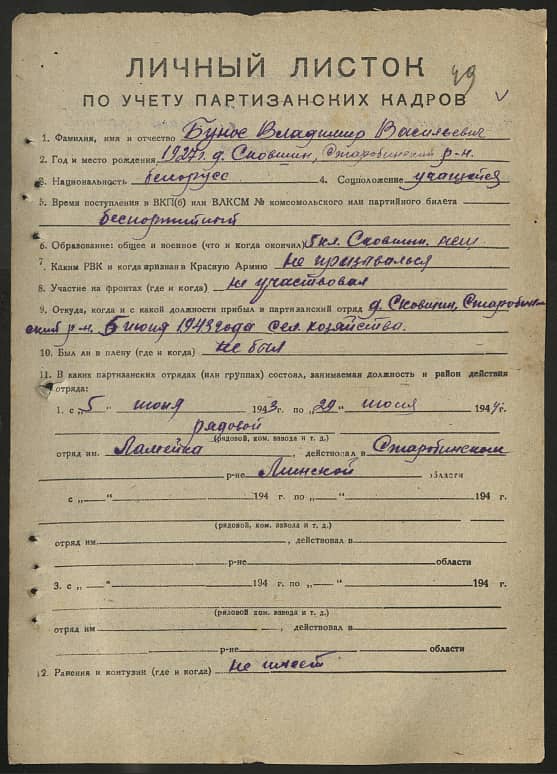 ЛИЧНЫЙ ЛИСТОК 49
ПО УЧЕТУ ПАРТИЗАНСКИХ КАДРОВ
1. Фамилия, имя и отчество Бунос Владимир Васильевич
2. Год и место рождения 1927 г. д. Сковшин, Старобинский р-н.
3. Национальность белорусс 4. Соцположение учащейся
5. Время поступления в ВКП(б) или ВЛКСМ № комсомольского или партийного билета
беспартийный
6. Образование: общее и военное (что и когда окончил) 5 кл. Сковшин. нсш
7. Каким РВК и когда призван в Красную Армию не призывался
8. Участие на фронтах (где и когда) не участвовал
9. Откуда, когда и с какой должности прибыл в партизанский отряд д. Сковшин, Старобин-
ский р-н. 5 июня 1943 года сел. хозяйства.
10. Был ли в плену (где и когда) не был
11. В каких партизанских отрядах (или группах) состоял, занимаемая должность и район действия
отряда:
1. с „5" июня 1943 г. по „29" июня 1944 г.
рядовой
(рядовой, ком. взвода и т. д.)
отряд им. Ламейка, действовал в Старобинском
р-не Минской области
с „—" 194 г. по „—" 194 г.
(рядовой, ком. взвода и т. д.)
отряд им. , действовал в
р-не области
3. с „—" 194 г. по „—" 194 г.
(рядовой, ком. взвода и т. д.)
отряд им , действовал в
р-не области
12. Ранения и контузии (где и когда) не имеет